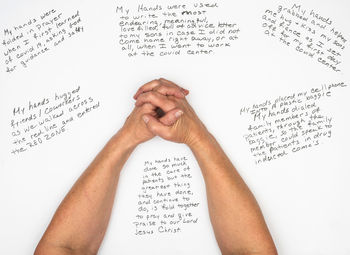 My hands were
folded in prayer
when I first learned
of Covid 19, asking God
for guidance and safety
My Hands were used
to write the most
endearing, meaningful,
love filled, full of advice letter
to my sons in case I did not
come home right away, or at
all, when I went to work
at the covid center.
My hands
grabbed
me
my first day
at the covid center
My hands hugged
friends/coworkers
as we walked across
the red line and entered
the RED ZONE.
My hands placed my cell phone
into a plastic baggie
My hands dialed
family members of the
patients, through the
baggie, so the family
member could speak to
the patients in drug
induced coma's
My hands have
done so much
in the care of
patients but the
greatest thing
they have done,
and continue to
do, is fold together
to pray and give
praise to our Lord
Jesus Christ.